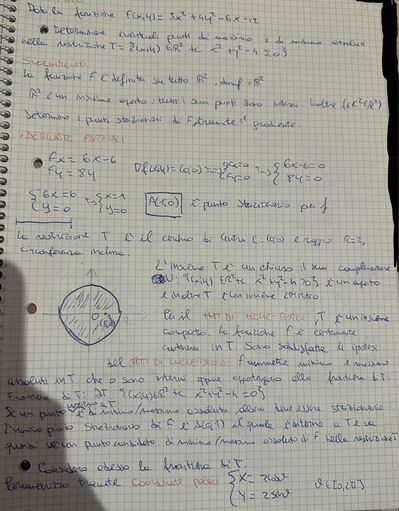 Data la funzione f(x,y)= 3x²+4y²-6x-12
• Determinare eventuali punti di massimo e di minimo assoluti
nella restrizione T= {(x,y)∈ℝ² tc x²+y²-4≤0}
SVOLGIMENTO
La funzione f è definita su tutto ℝ², domf=ℝ²
ℝ² è un insieme aperto: tutti i suoi punti sono interni. Inoltre f∈C²(ℝ²)
Determino i punti stazionari di f tramite il gradiente.
• DERIVATE PARZIALI
• fx = 6x-6
fy = 8y
∇f(x,y)=(0,0) => { fx=0 fy=0 => { 6x-6=0 8y=0
{ 6x=6 y=0 => { x=1 y=0
A(1,0) è punto stazionario per f
La restrizione T è il cerchio di centro C:(0,0) e raggio R=2,
circonferenza inclusa.
L'insieme T è un chiuso: il suo complementare
{(x,y)∈ℝ² tc x²+y²-4>0} è un aperto
e inoltre T è un insieme limitato
Per il TEO DI HEINE-BOREL, T è un insieme
compatto. La funzione f è certamente
continua in T. Sono soddisfatte le ipotesi
del TEO DI WEIERSTRASS: f ammette minimo e massimo
assoluti in T che o sono interni oppure appartengono alla frontiera di T.
Frontiera di T: ∂T {(x,y)∈ℝ² tc x²+y²-4=0}
Se un punto interno a T è di minimo/massimo assoluto, allora deve essere stazionario
L'unico punto stazionario di f è A(1,0) il quale è interno a T e va
quindi è un punto candidato di minimo/massimo assoluto di f nella restrizione T
• Considero adesso la frontiera di T.
Parametrizzo tramite Coordinate polari { X= 2cosϑ Y= 2sinϑ ϑ∈[0,2π]